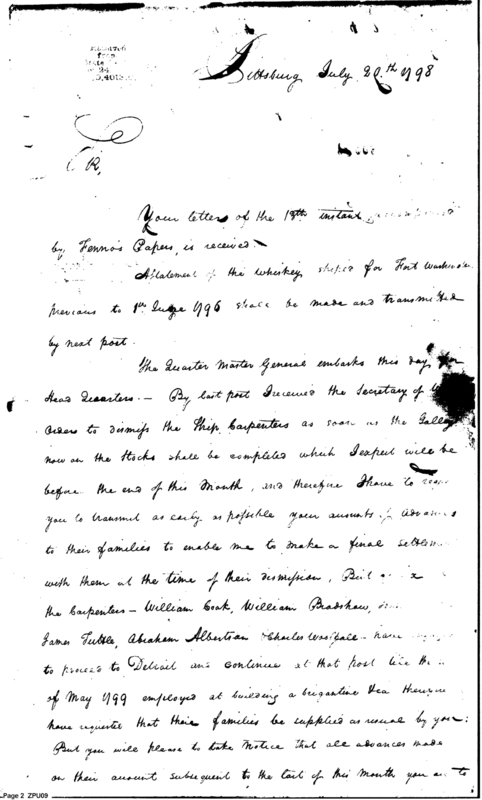 Pittsburg July 20th 1798
Your letter of the 13th instant
by Fenno's Papers, is received.
A Statement of the Whiskey shiped for Fort Washington
previous to 1st June 1796 shall be made and transmitted
by next post.
The Quarter Master General embarks this day for
Head Quarters. — By last post I received the Secretary of
orders to dismiss the Ship Carpenters as soon as the Galley
now on the Stocks shall be completed which I expect will be
before the end of this Month, and therefore I have to
you to transmit as early as possible your amounts of advances
to their families to enable me to make a final
with them at the time of their dismission, But
the Carpenters — William Cook, William Bradshaw,
James Tuttle, Abraham Albertson Charles Westfall have
to proceed to Detroit and continue at that post till the
of May 1799 employed at building a brigantine
have requested that their families be supplied as usual by you:
But you will please to take Notice that all advances made
on their amount subsequent to the last of this Month you are to
Page 2 ZPU09